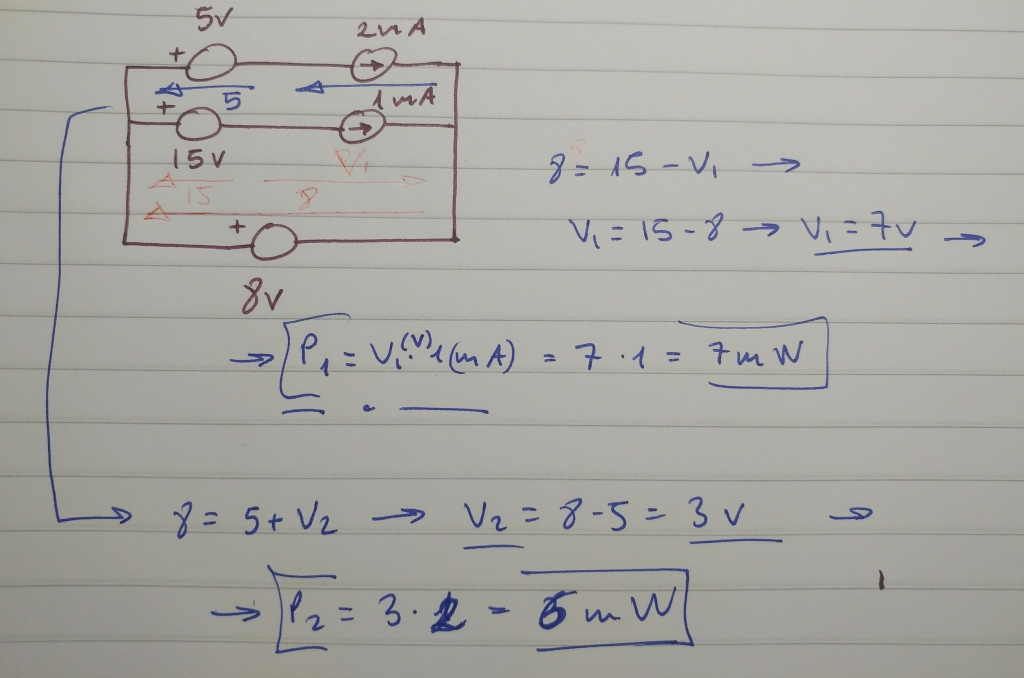 5V 2mA
+
5
+ 1mA
15V V₁
15 8
+
8V
8 = 15 - V₁ →
V₁ = 15 - 8 → V₁ = 7V →
→ P₁ = V₁(V) · 1(mA) = 7 · 1 = 7mW
→ 8 = 5 + V₂ → V₂ = 8 - 5 = 3V →
→ P₂ = 3 · 2 = 6mW